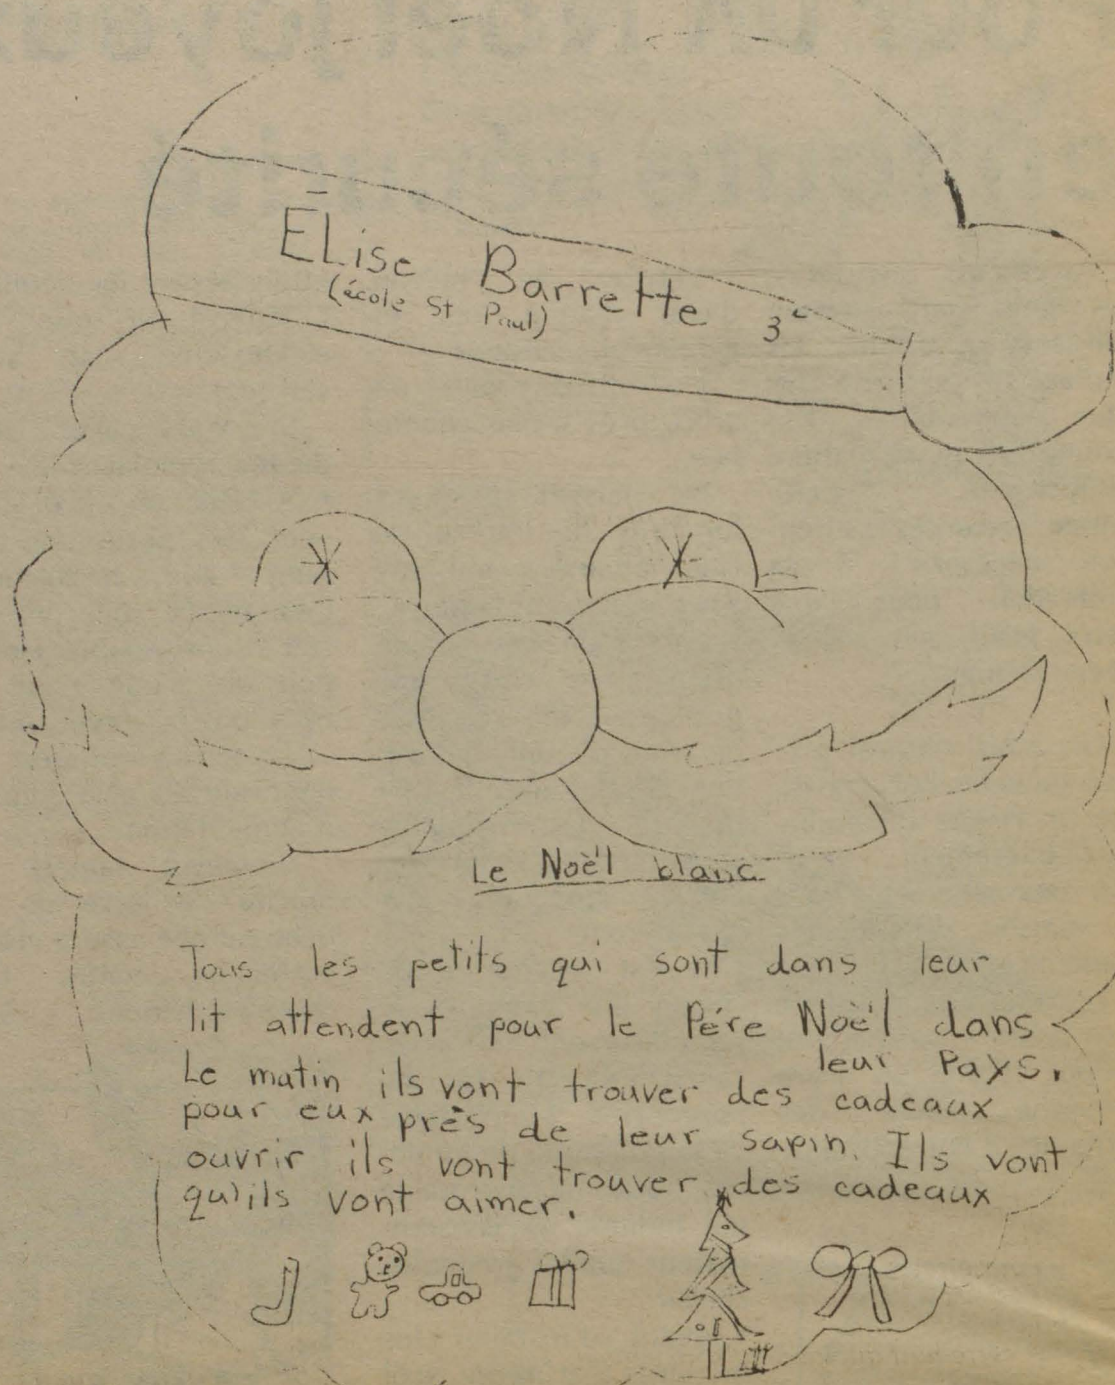 Élise Barrette 3e
(école St Paul)
Le Noèl blanc
Tous les petits qui sont dans leur
lit attendent pour le Pére Noèl dans
leur Pays.
Le matin ils vont trouver des cadeaux
pour eux près de leur sapin. Ils vont
ouvrir ils vont trouver des cadeaux
qu'ils vont aimer.